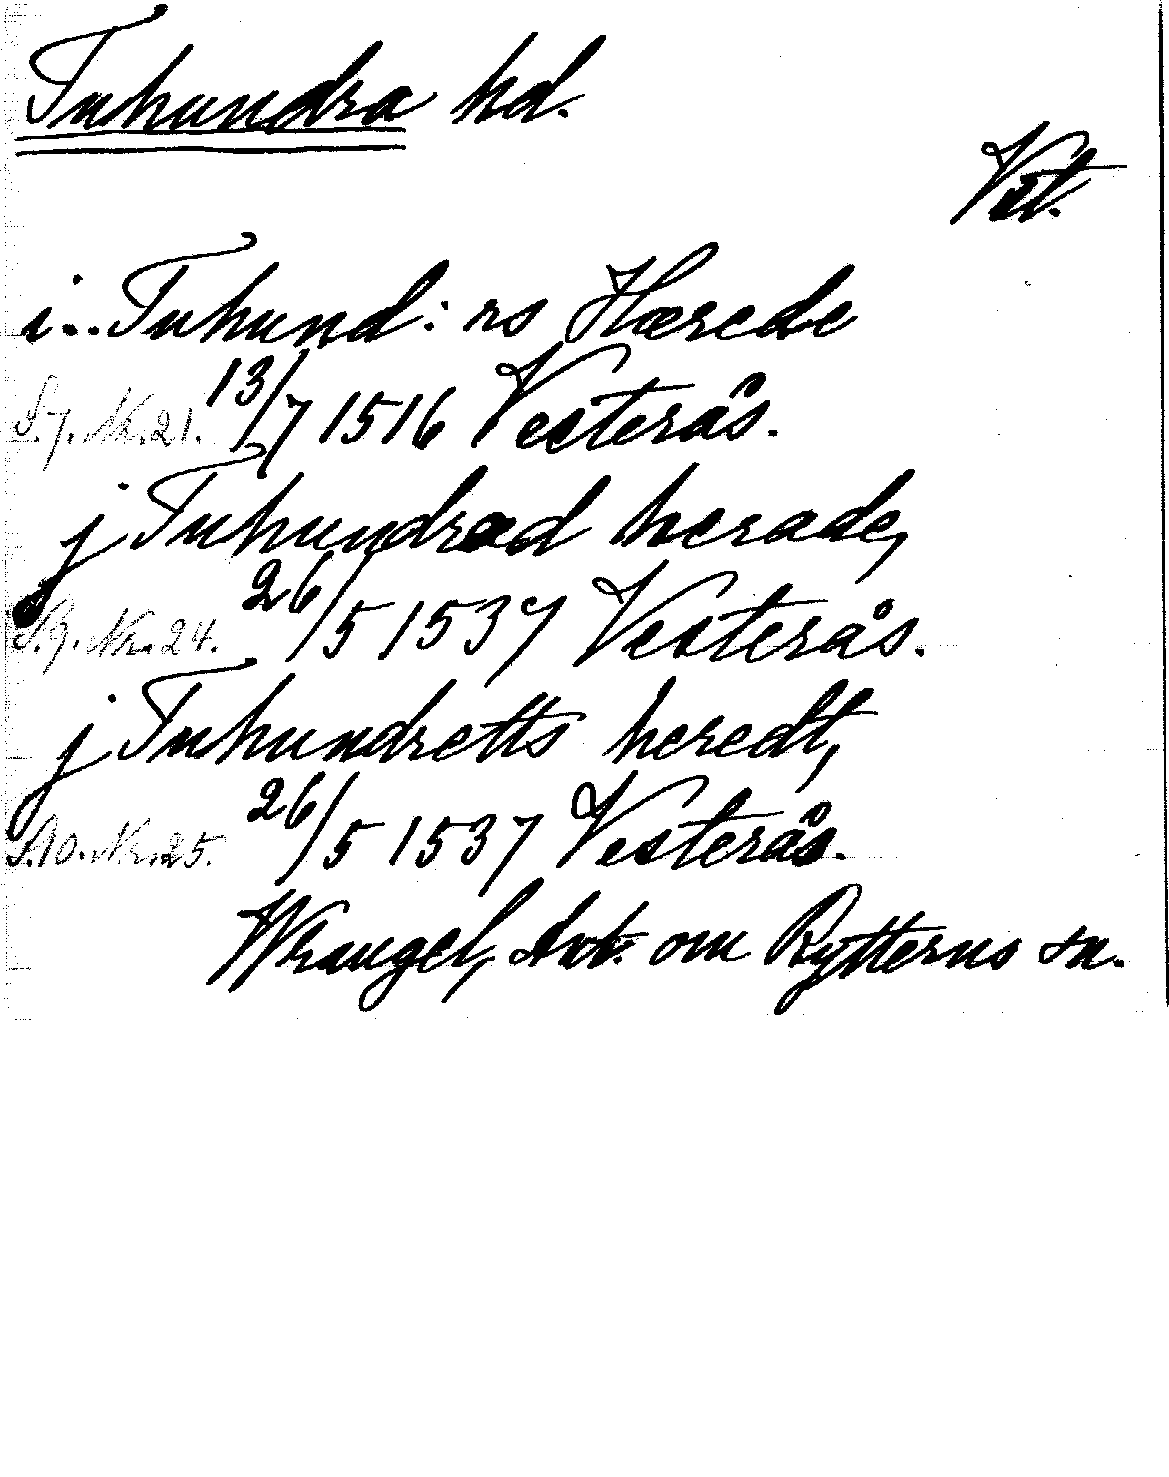 Tuhundra hd.
Vst.
i.. Tuhund: rs Hærede
S.7. Nr. 21. 13/7 1516 Vesterås.
j Tuhundræd herade,
S.9. Nr. 24. 26/5 1537 Vesterås.
j Tuhundretts heredt,
S.10. Nr. 25. 26/5 1537 Vesterås.
Wrangel, Ant. om Rytterns sn.